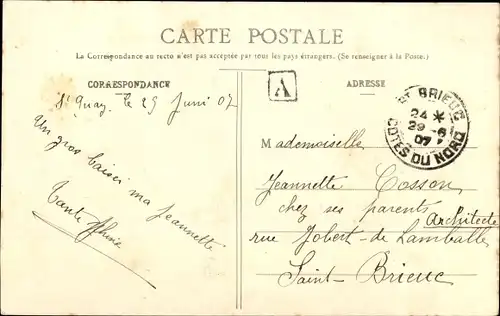 CARTE POSTALE
La Correspondance au recto n'est pas acceptée par tous les pays étrangers. (Se renseigner à la Poste.)
CORRESPONDANCE
St Quay, le 29 Juni 07
Un gros baiser ma Jeannette
Tante
ADRESSE
A
St BRIEUC
24 *
29 -6
07
COTES DU NORD
Mademoiselle
Jeannette Cosson
chez ses parents
Architecte
rue Jobert-de Lamballe
Saint-Brieuc